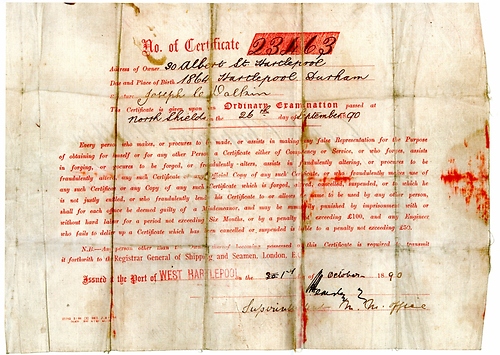 No. of Certificate 23463
Address of Owner 30 Albert St. Hartlepool
Date and Place of Birth 1864 Hartlepool Durham
Joseph C Watkin
This Certificate is given upon an Ordinary Examination passed at
North Shields on the 26th day of September 90
Every person who makes, or procures to be made, or assists in making any false Representation for the Purpose
of obtaining for himself or for any other Person a Certificate either of Competency or Service, or who forges, assists
in forging, or procures to be forged, or fraudulently alters, assists in fraudulently altering, or procures to be
fraudulently altered, any such Certificate or any Official Copy of any such Certificate, or who fraudulently makes use of
any such Certificate or any Copy of any such Certificate which is forged, altered, cancelled, suspended, or to which he
is not justly entitled, or who fraudulently lends his Certificate to or allows the same to be used by any other person,
shall for each offence be deemed guilty of a Misdemeanor, and may be summarily punished by imprisonment with or
without hard labor for a period not exceeding Six Months, or by a penalty not exceeding £100, and any Engineer
who fails to deliver up a Certificate which has been cancelled or suspended is liable to a penalty not exceeding £50.
N.B.—Any person other than the Owner thereof becoming possessed of this Certificate is required to transmit
it forthwith to the Registrar General of Shipping and Seamen, London, E.C.
Issued at the Port of WEST HARTLEPOOL on the 1st October 1890
Superintendent M. M. Office